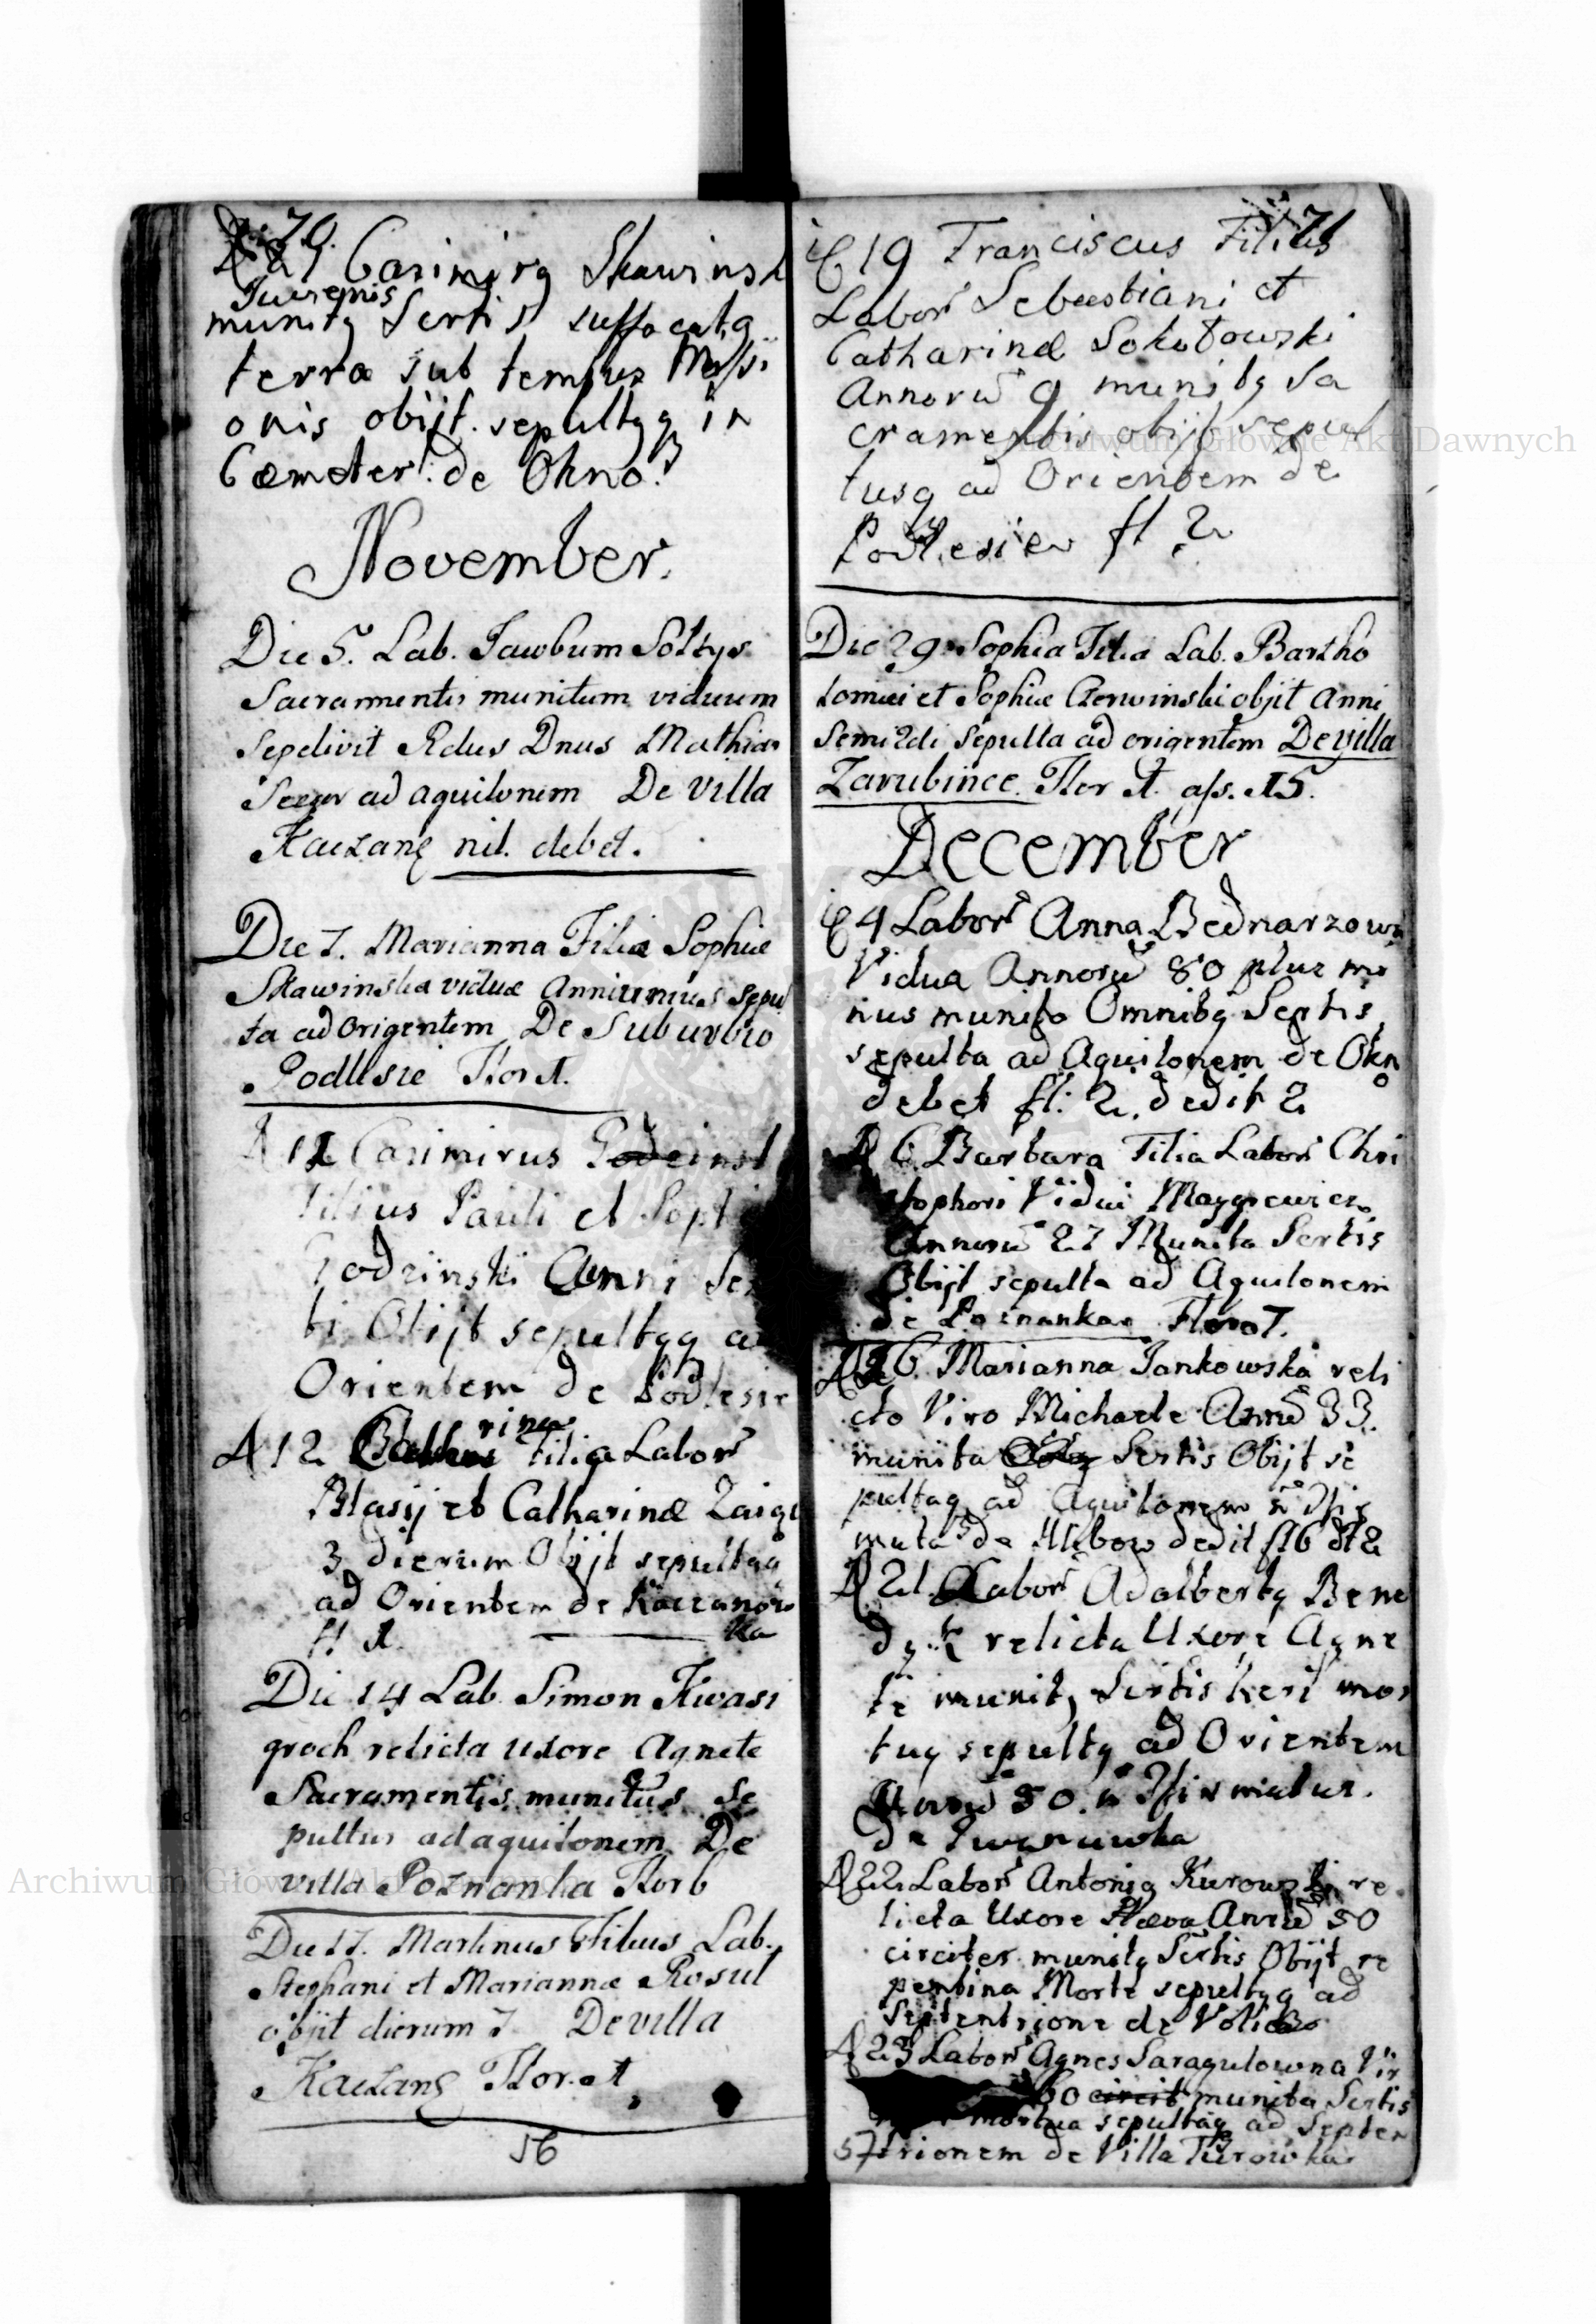 70.
D 21 Casimirg Skawinsk
Juvenis
munitg Scrtis suffocatg
terra sub tempus Missi
onis obijt. sepultgq in
Cæmeter: de Okno.
November.
Die 5. Lab. Jacobum Soltys
Sacramentis munitum viduum
Sepelivit Rdus Dnus Mathias
ad aquilonem De Villa
Kaczang nil. debet.
Die 7. Marianna Filia Sophiæ
Skawinska viduæ Anni unius Sepul
ta ad origentem De Suburbio
Podlesie Flor 1.
12 Casimirus
Filius Pauli et Soph
Godzinski Anni Se
ti Obijt sepultgq a
Orientem de Podlesie
12 Catharina Filia Labor
Blasij et Catharinæ
3 dierum Obijt sepultaq
ad Orientem de Kaczanow
ka
fl 1.
Die 14 Lab. Simon Kwasi
groch relicta uxore Agnete
Sacramentis munitus Se
pultus ad aquilonem De
villa Poznanka Flor 6
Die 17. Martinus Filius Lab.
Stephani et Mariannæ Rosul
objit dierum 7 De villa
Kaczang Flor. 1
56
71
19 Franciscus Filius
Labor Sebastiani et
Catharinæ Sokołowski
Annorū 9 munitg Sa
cramentis obijt sepul
tusq ad Orientem de
Podlesie fl 2
Die 29 Sophia Filia Lab. Bartho
lomæi et Sophiæ Czerwinski objit Anni
Sepulta ad origentem De villa
Zarubince. Flor 1. as. 15.
December
4 Labor Anna Bednarzowa
Vidua Annorū 80 plus mi
nus munita Omnibg Scrtis
sepulta ad Aquilonem de Okn
o
debet fl: 2. dedit 2
6 Barbara Filia Labor Chri
stophori Vidui
Annorū 27 Munita Scrtis
Obijt sepulta ad Aquilonem
de Poznanka Flor 7.
Marianna Jankowska reli
cto Viro Michaele Annū 33.
munita Scrtis Obijt se
pultaq ad Aquilonem
de dedit fl 6
21. Labor Adalbertg Bene
dy relicta Uxore Agne
te munitg Scrtis
tug sepultg ad Orientem
Annū 50.
de Iwanuwka
22 Labor Antonig Kurowski re
licta Uxore Annū 50
circiter munitg Scrtis Obijt re
pentina Morte sepultgq ad
Septentrione de
23 Labor Agnes Saragulowna Vir
60 circit munita Scrtis
mortua sepultaq ad Septen
57 trionem de Villa Turowka